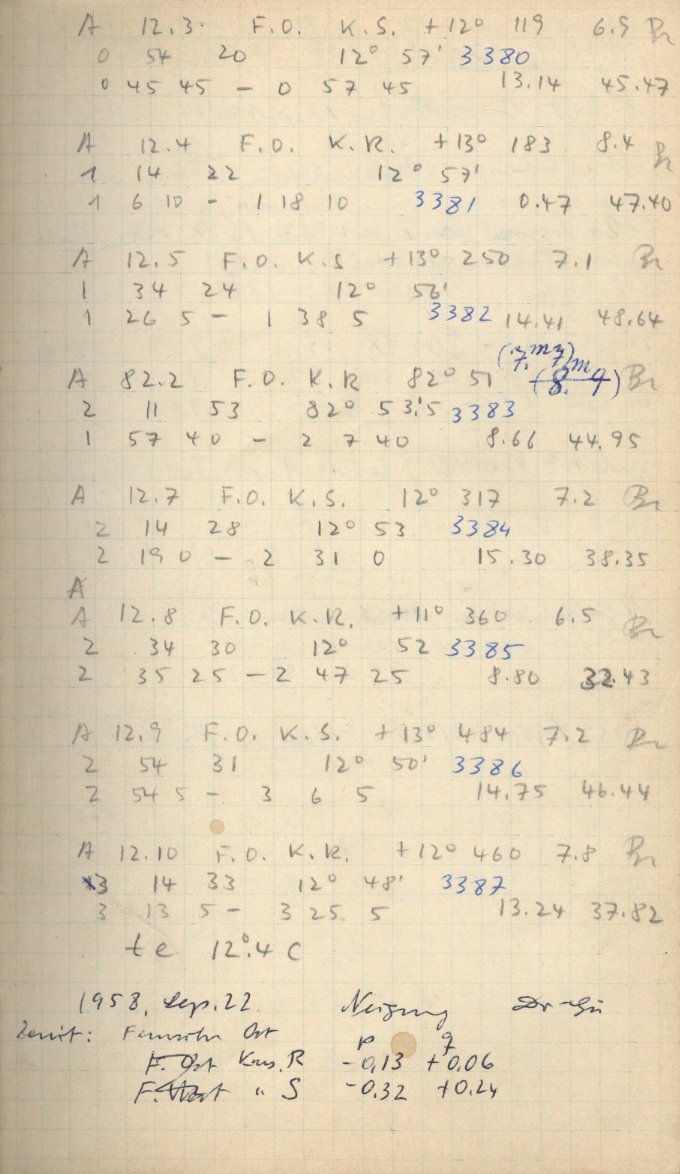 A 12.3. F.O. K.S. +12° 119 6.9 Br
0 54 20 12° 57' 3380
0 45 45 - 0 57 45 13.14 45.47
A 12.4 F.O. K.R. +13° 183 8.4 Br
1 14 22 12° 57'
1 6 10 - 1 18 10 3381 0.47 47.40
A 12.5 F.O. K.S +13° 250 7.1 Br
1 34 24 12° 56'
1 26 5 - 1 38 5 3382 14.41 48.64
(7.ᵐ7)
A 82.2 F.O. K.R 82° 51 (8.ᵐ9) Br
2 11 53 82° 53.'5 3383
1 57 40 - 2 7 40 8.66 44.95
A 12.7 F.O. K.S. 12° 317 7.2 Br
2 14 28 12° 53 3384
2 19 0 - 2 31 0 15.30 38.35
A
A 12.8 F.O. K.R. +11° 360 6.5 Br
2 34 30 12° 52 3385
2 35 25 - 2 47 25 8.80 32.43
A 12.9 F.O. K.S. +13° 484 7.2 Br
2 54 31 12° 50' 3386
2 54 5 - 3 6 5 14.75 46.44
A 12.10 F.O. K.R. +12° 460 7.8 Br
3 14 33 12° 48' 3387
3 13 5 - 3 25 5 13.24 37.82
te 12°.4 C
1958, Sep. 22 Neigung
Zenit: Fernrohr Ost
p q
F. Ost Kass. R -0,13 +0.06
F. West " S -0.32 +0.24